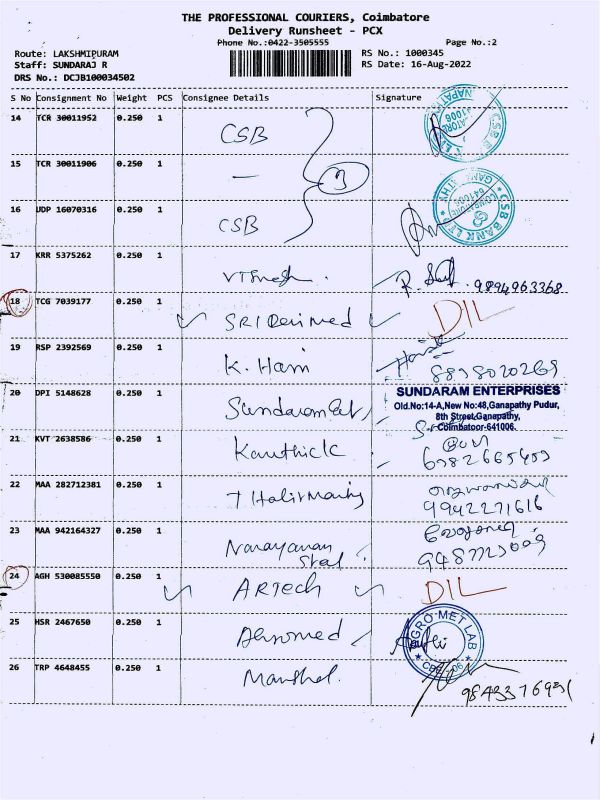 THE PROFESSIONAL COURIERS, Coimbatore
Delivery Runsheet - PCX
Phone No.:0422-3505555 Page No.:2
Route: LAKSHMIPURAM RS No.: 1000345
Staff: SUNDARAJ R RS Date: 16-Aug-2022
DRS No.: DCJB100034502
S No Consignment No Weight PCS Consignee Details Signature
14 TCR 30011952 0.250 1 CSB
3
15 TCR 30011906 0.250 1 —
16 UDP 16070316 0.250 1 CSB
CSB BANK LTD
GANAPATHY
COIMBATORE
641006
17 KRR 5375262 0.250 1 9894963368
18 TCG 7039177 0.250 1 SRI Devimed DIL
19 RSP 2392569 0.250 1 K. Hani 8898020269
20 DPI 5148628 0.250 1 Sundaram
SUNDARAM ENTERPRISES
Old.No:14-A,New No:48,Ganapathy Pudur,
8th Street,Ganapathy,
Coimbatoor-641006.
21 KVT 2638586 0.250 1 Kauthick
22 MAA 282712381 0.250 1 9942271616
23 MAA 942164327 0.250 1 Narayanan
24 AGH 530085550 0.250 1 ARTech DIL
25 HSR 2467650 0.250 1
AGRO MET LAB
26 TRP 4648455 0.250 1